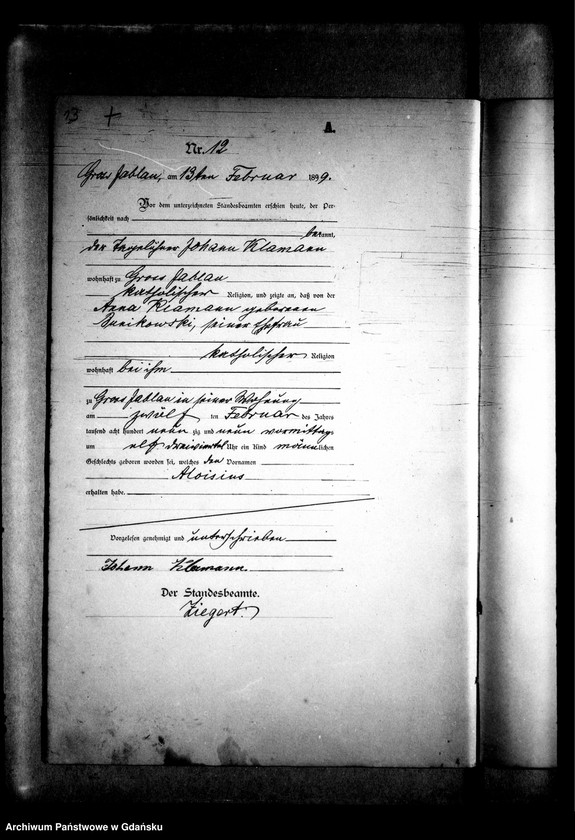 13 +
A.
Nr. 12
Gross Jablau, am 13ten Februar 1899.
Vor dem unterzeichneten Standesbeamten erschien heute, der Per-
sönlichkeit nach
bekannt,
der Tagelöhner Johann Klamann
wohnhaft zu Gross Jablau
katholischer Religion, und zeigte an, daß von der
Anna Klamann geborenen
seiner Ehefrau
katholischer Religion
wohnhaft bei ihm
zu Gross Jablau in seiner Wohnung
am zwölf ten Februar des Jahres
tausend acht hundert neun zig und neun vormittags
um elf dreiviertel Uhr ein Kind männlichen
Geschlechts geboren worden sei, welches den Vornamen
Aloisius
erhalten habe.
Vorgelesen genehmigt und unterschrieben
Johann Klamann
Der Standesbeamte.
Ziegert.
Archiwum Państwowe w Gdańsku